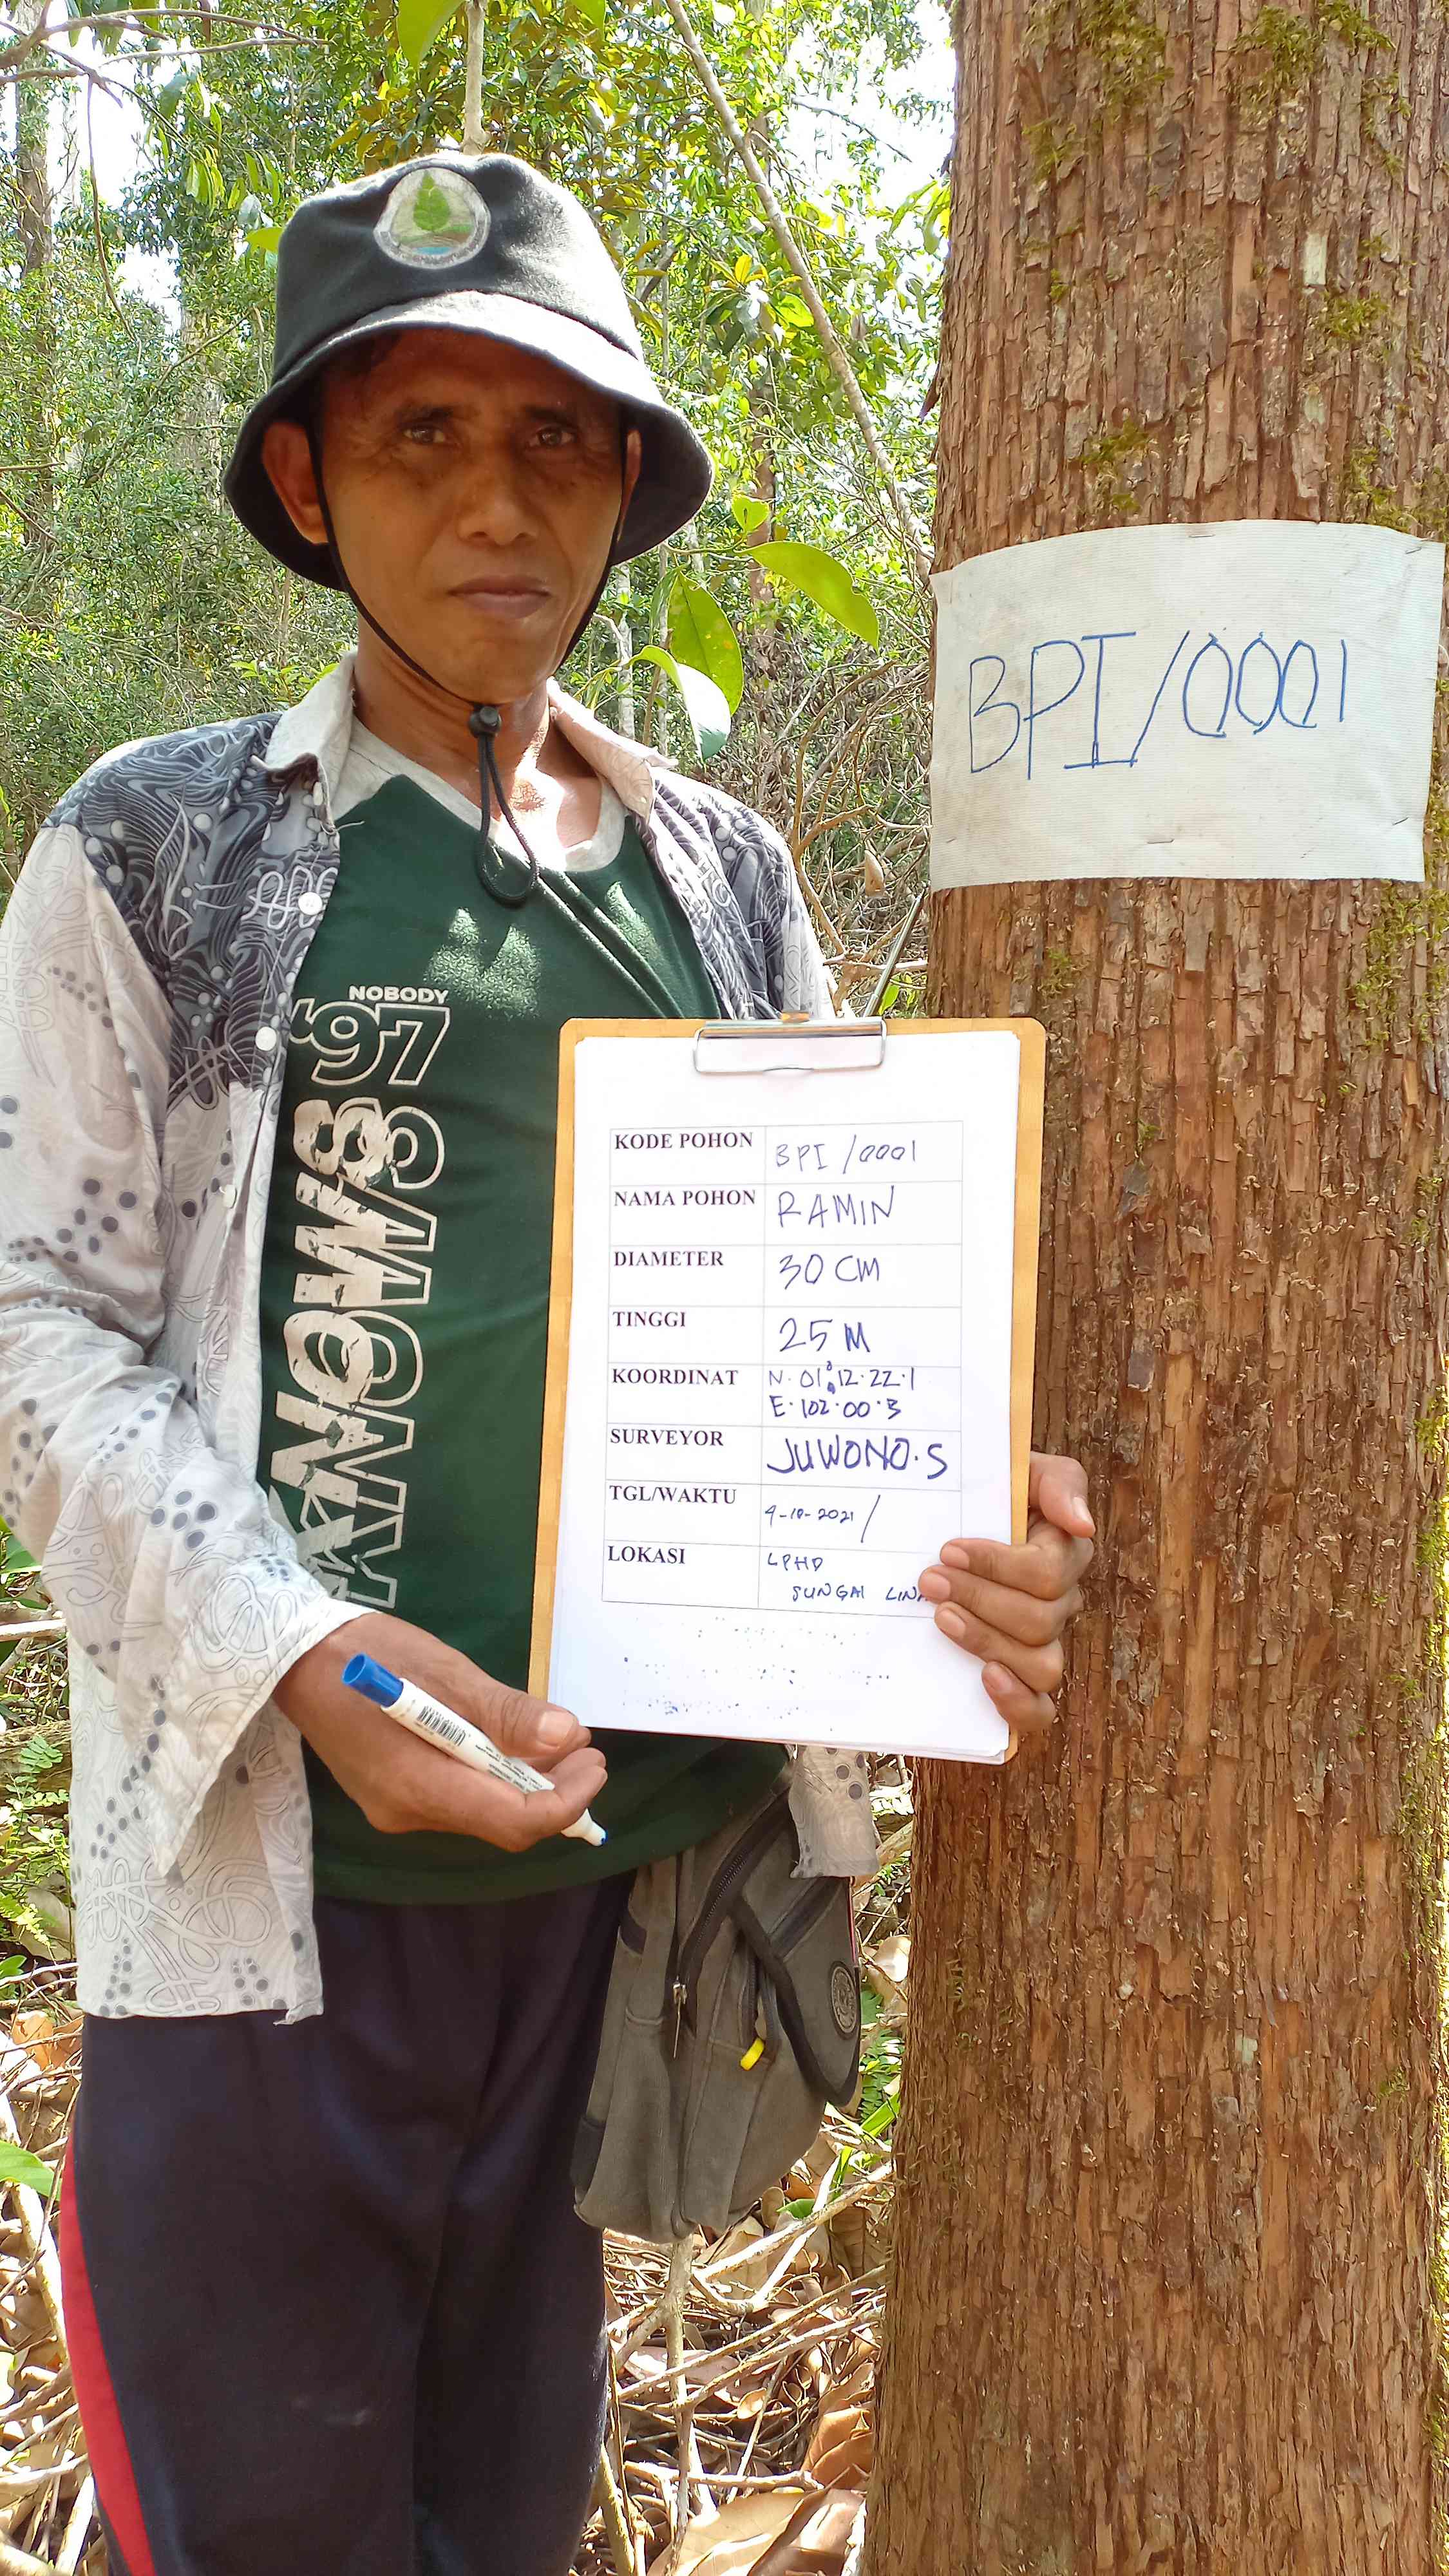 BPI/0001
NOBODY
'97
KODE POHON BPI/0001
NAMA POHON RAMIN
DIAMETER 30 CM
TINGGI 25 M
KOORDINAT N. 01°.12.22.1
E.102.00.3
SURVEYOR JUWONO.S
TGL/WAKTU 4-10-2021/
LOKASI LPHD
SUNGAI